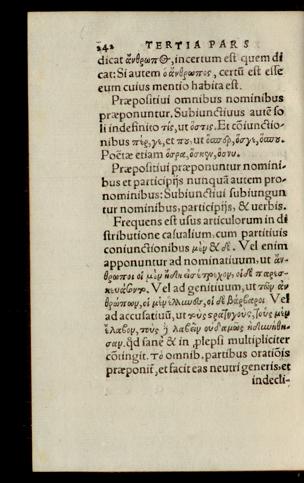 242 TERTIA PARS
dicat ἄνθρωπος, incertum est quem di
cat: Si autem ὁ ἄνθρωπος, certũ est esse
eum cuius mentio habita est.
Præpositiui omnibus nominibus
præponuntur. Subiunctiuus autẽ so
li indefinito τίς, ut ὅστις. Et cõiunctio-
nibus πέρ, γε, et που, ut ὅσπερ, ὅσγε, ὅσπου.
Poëtæ etiam
Præpositiui præponuntur nomini-
bus et participijs nunquã autem pro-
nominibus: Subiunctiui subiungun
tur nominibus, participijs, & uerbis.
Frequens est usus articulorum in di
stributione casualium, cum partitiuis
coniunctionibus μὲν & δὲ. Vel enim
apponuntur ad nominatiuum, ut ἄν-
θρωποι οἱ μὲν οἱ δὲ παρεσ-
κευάζοντο. Vel ad genitiuum, ut τῶν ἀν
θρώπων, οἱ μὲν οἱ δὲ βάρβαροι. Vel
ad accusatiuũ, ut τοὺς στρατηγοὺς, τοὺς μὲν
ἔλαβον, τοὺς λαβεῖν οὐδαμῶς
σαν. ꝙd sanè & in multipliciter
cõtingit. Τὸ omnib. partibus oratiõis
præponit̃, et facit eas neutri generis, et
indecli-